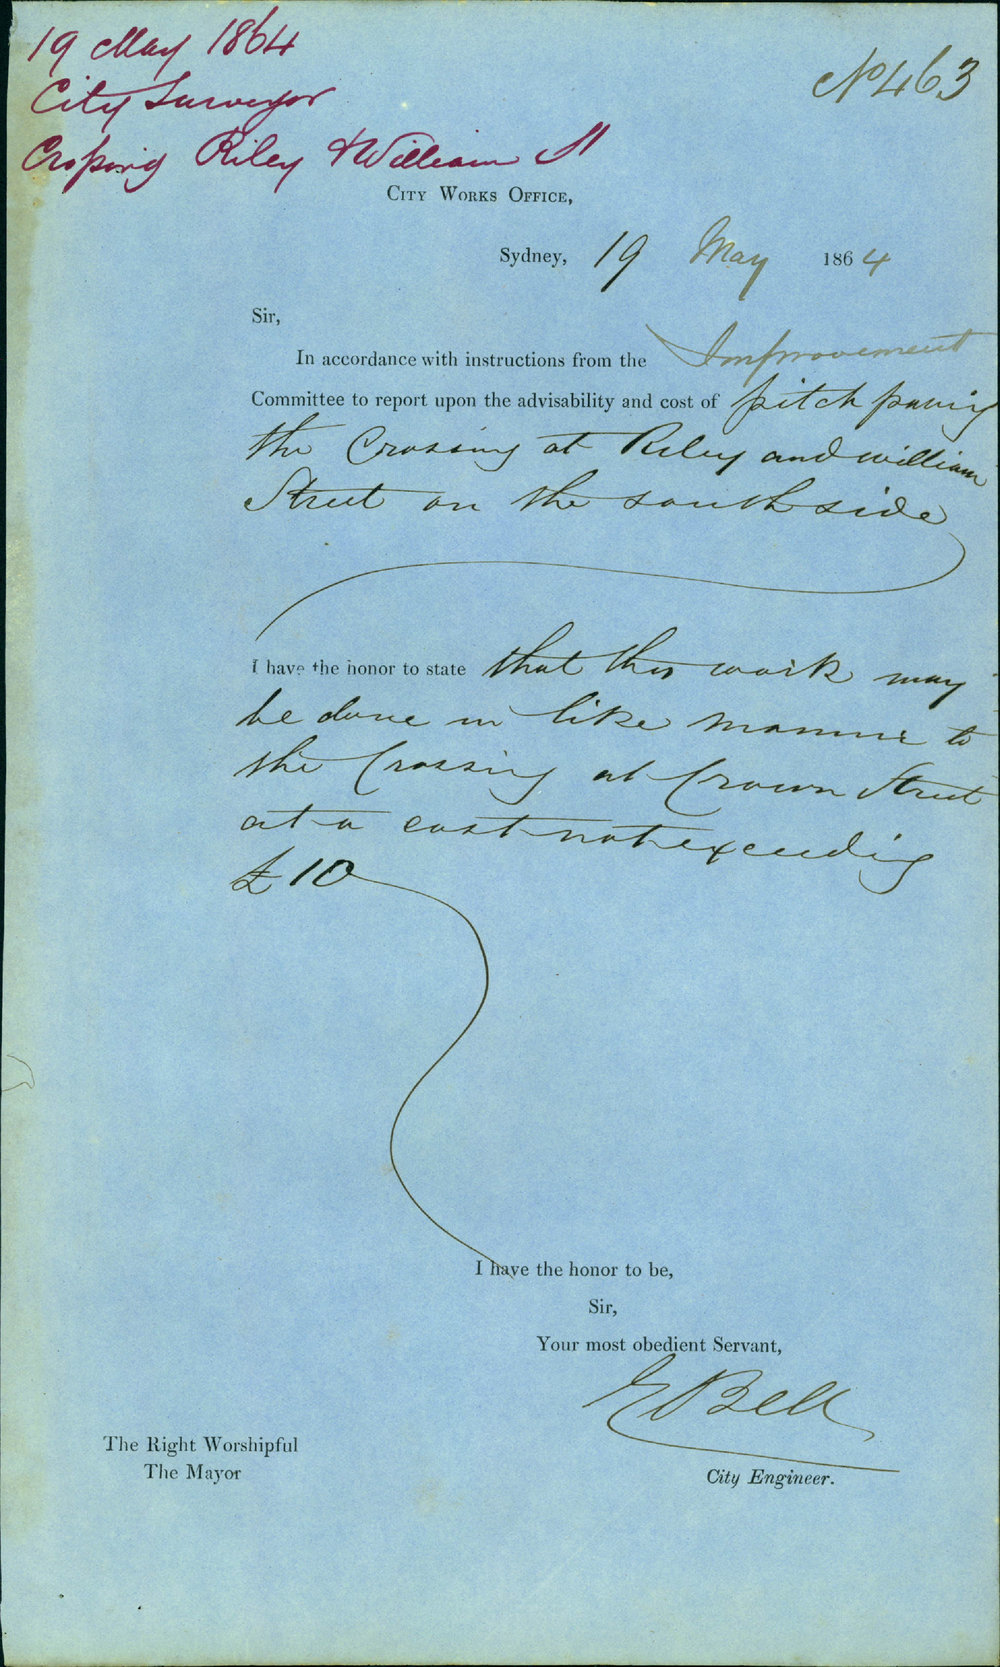 19 May 1864
City Surveyor
Crossing Riley & William St
No 463
City Works Office,
Sydney, 19 May 1864
Sir,
In accordance with instructions from the Improvement
Committee to report upon the advisability and cost of pitch paving
the Crossing at Riley and William
Street on the south side
I have the honor to state that this work may
be done in like manner to
the Crossing at Crown Street
at a cost not exceeding
£10
I have the honor to be,
Sir,
Your most obedient Servant,
E Bell
City Engineer.
The Right Worshipful
The Mayor